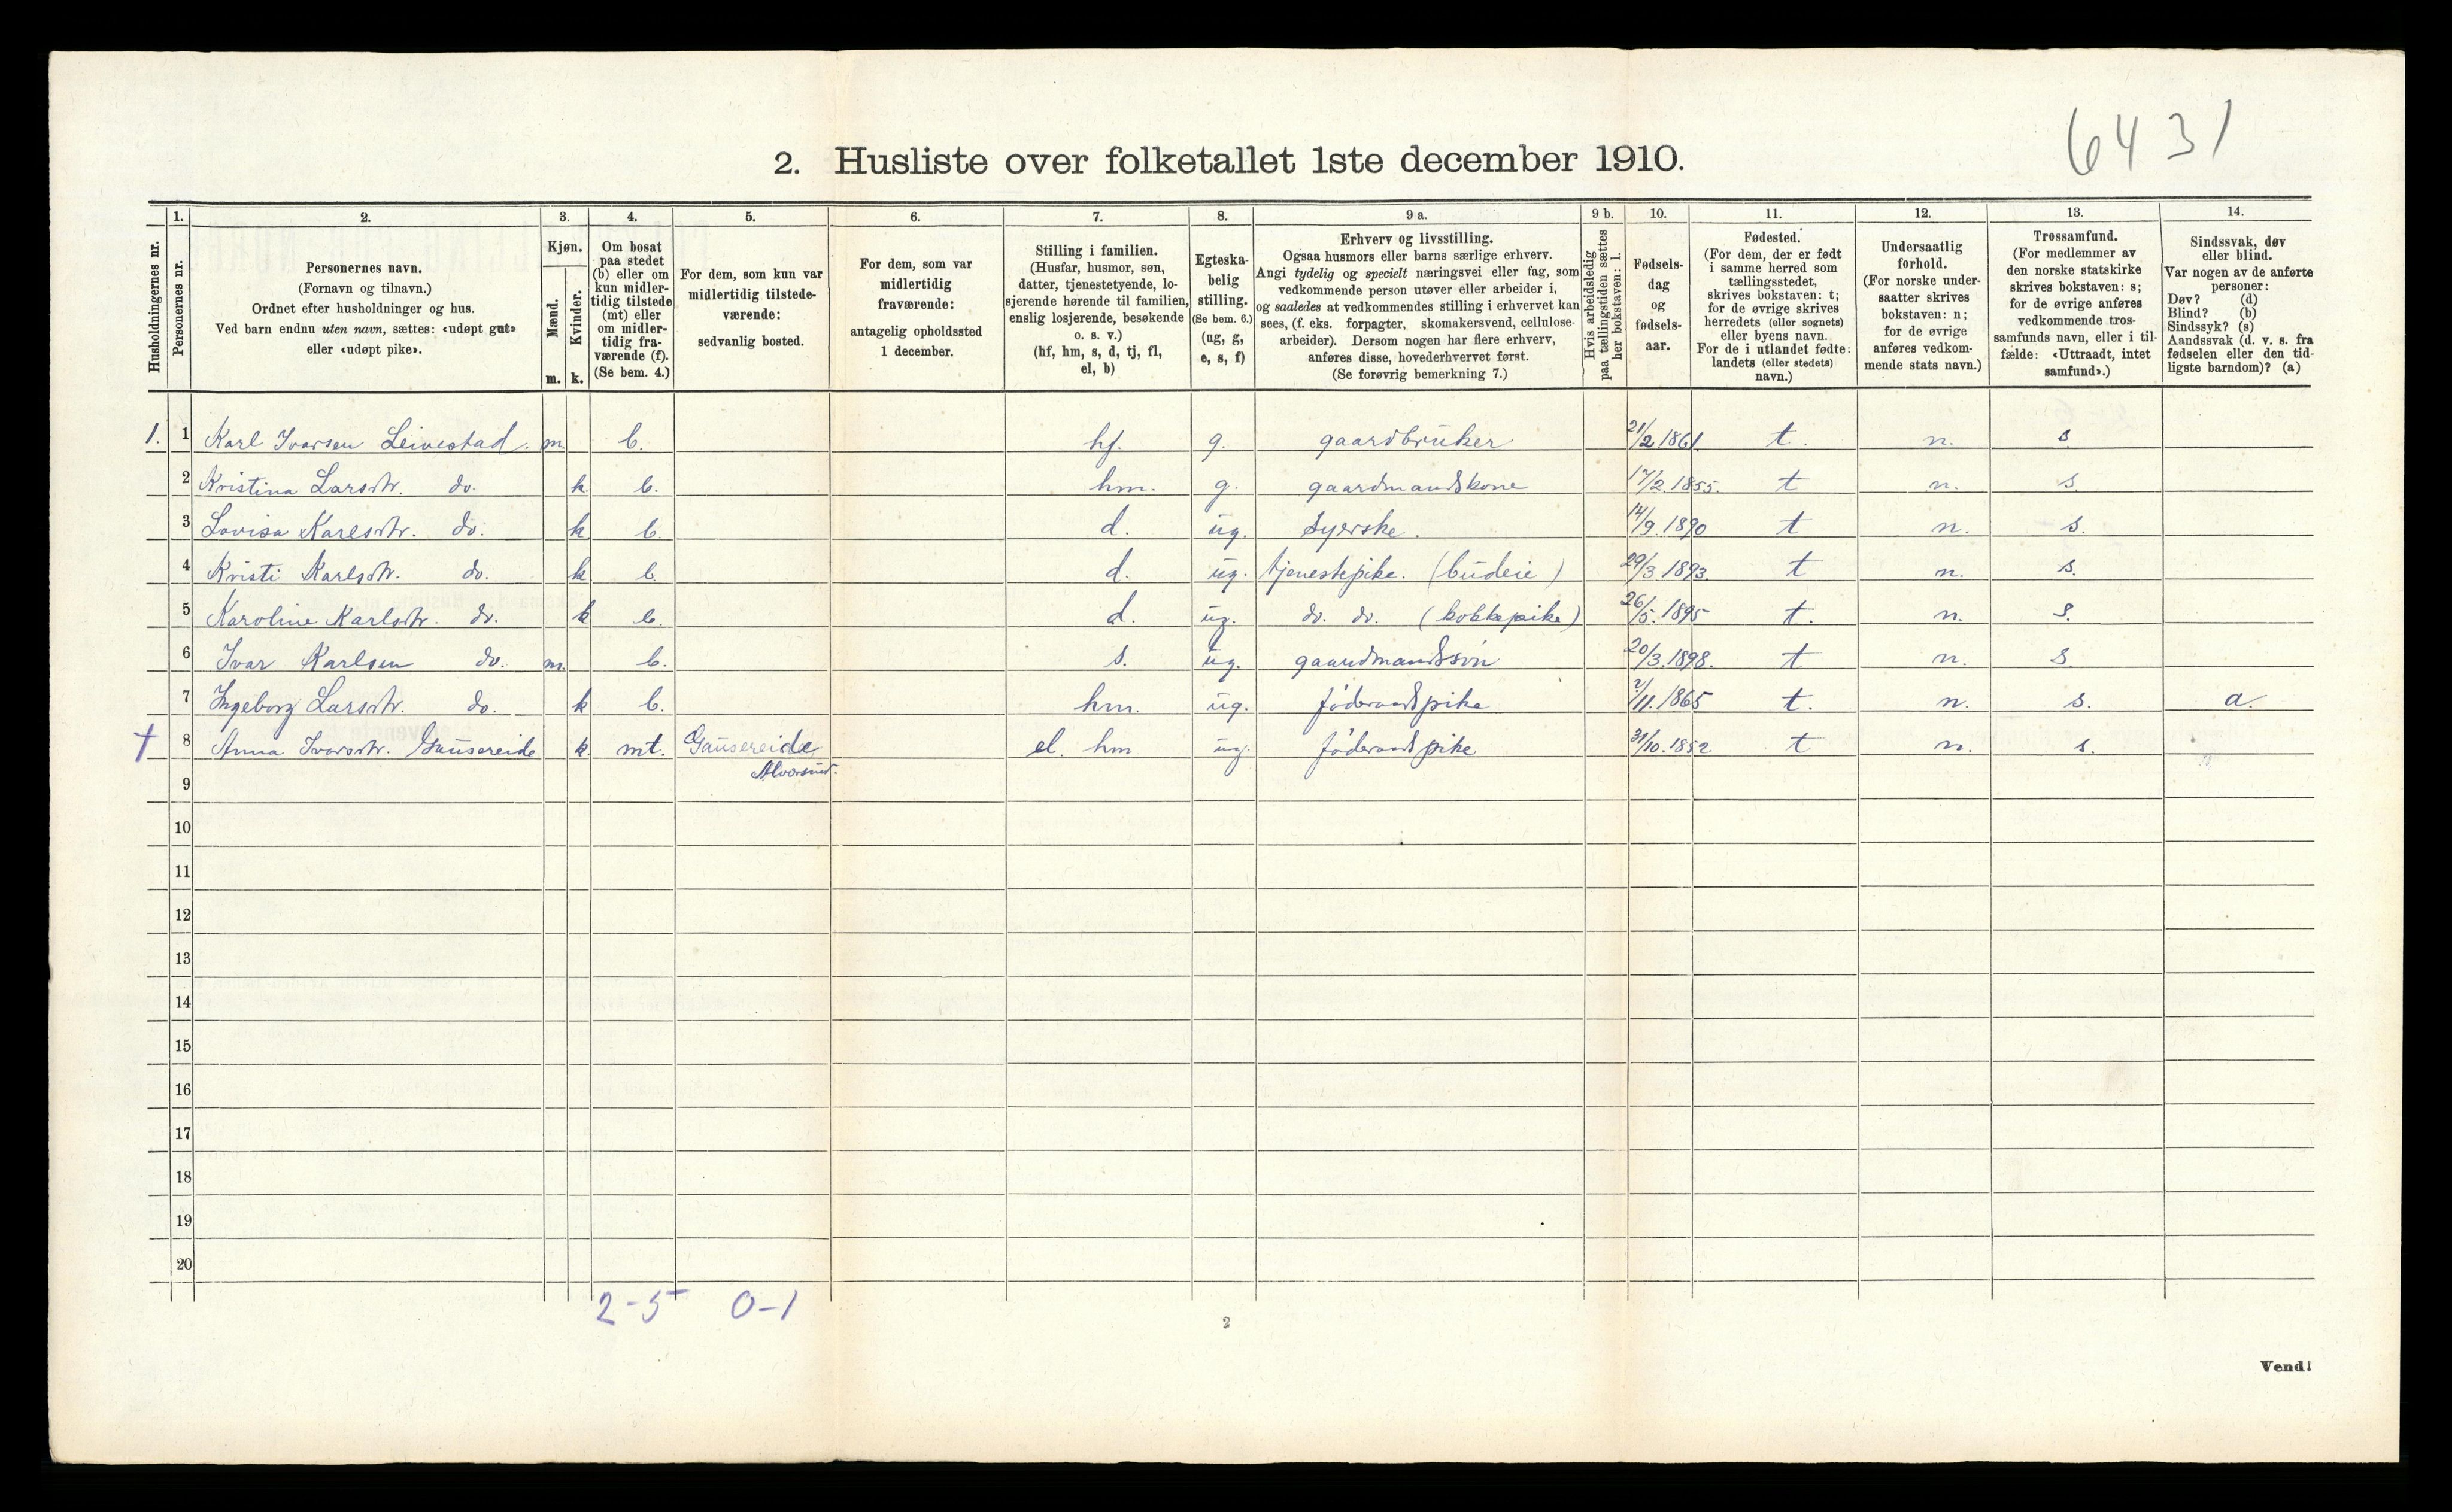 6431
2. Husliste over folketallet 1ste december 1910.
Husholdningernes nr.
1. Personernes nr.
2. Personernes navn. (Fornavn og tilnavn.) Ordnet efter husholdninger og hus. Ved barn endnu uten navn, sættes: «udøpt gut» eller «udøpt pike».
3. Kjøn. Mænd. m. Kvinder. k.
4. Om bosat paa stedet (b) eller om kun midlertidig tilstede (mt) eller om midlertidig fraværende (f). (Se bem. 4.)
5. For dem, som kun var midlertidig tilstedeværende: sedvanlig bosted.
6. For dem, som var midlertidig fraværende: antagelig opholdssted 1 december.
7. Stilling i familien. (Husfar, husmor, søn, datter, tjenestetyende, losjerende hørende til familien, enslig losjerende, besøkende o. s. v.) (hf, hm, s, d, tj, fl, el, b)
8. Egteskabelig stilling. (Se bem. 6.) (ug, g, e, s, f)
9 a. Erhverv og livsstilling. Ogsaa husmors eller barns særlige erhverv. Angi tydelig og specielt næringsvei eller fag, som vedkommende person utøver eller arbeider i, og saaledes at vedkommendes stilling i erhvervet kan sees, (f. eks. forpagter, skomakersvend, cellulosearbeider). Dersom nogen har flere erhverv, anføres disse, hovederhvervet først. (Se forøvrig bemerkning 7.)
9 b. Hvis arbeidsledig paa tællingstiden sættes her bokstaven: l.
10. Fødselsdag og fødselsaar.
11. Fødested. (For dem, der er født i samme herred som tællingsstedet, skrives bokstaven: t; for de øvrige skrives herredets (eller sognets) eller byens navn. For de i utlandet fødte: landets (eller stedets) navn.)
12. Undersaatlig forhold. (For norske undersaatter skrives bokstaven: n; for de øvrige anføres vedkommende stats navn.)
13. Trossamfund. (For medlemmer av den norske statskirke skrives bokstaven: s; for de øvrige anføres vedkommende trossamfunds navn, eller i tilfælde: «Uttraadt, intet samfund».)
14. Sindssvak, døv eller blind. Var nogen av de anførte personer: Døv? (d) Blind? (b) Sindssyk? (s) Aandssvak (d. v. s. fra fødselen eller den tidligste barndom)? (a)
1. 1 Karl Ivarsen Leivestad. m. b. hf. g. gaardbruker 21/2 1861. t. n. s
2 Kristina Larsdtr. do. k b. hm. g. gaardmandskone 17/2 1855. t n. s.
3 Lovisa Karlsdtr. do. k b. d. ug. Syerske. 14/9. 1890 t n. s.
4 Kristi Karlsdtr. do. k b d. ug. tjenestepike. (budeie) 29/3. 1893. t n. s.
5 Karoline Karlsdtr. do. k b. d. ug. do. do. (kokkepike) 26/5. 1895 t. n. s.
6 Ivar Karlsen do. m. b. s. ug. gaardmandssön 20/3. 1898. t n. s.
7 Ingeborg Larsdtr. do. k b. hm. ug. föderaadspike /11. 1865 t. n. s. a.
† 8 Anna Ivarsdtr. Gausereide k. mt. Gausereide el. hm ug. föderaadspike 31/10. 1852 t n. s.
Alversund.
9
10
11
12
13
14
15
16
17
18
19
20
2-5 0-1
2
Vend!